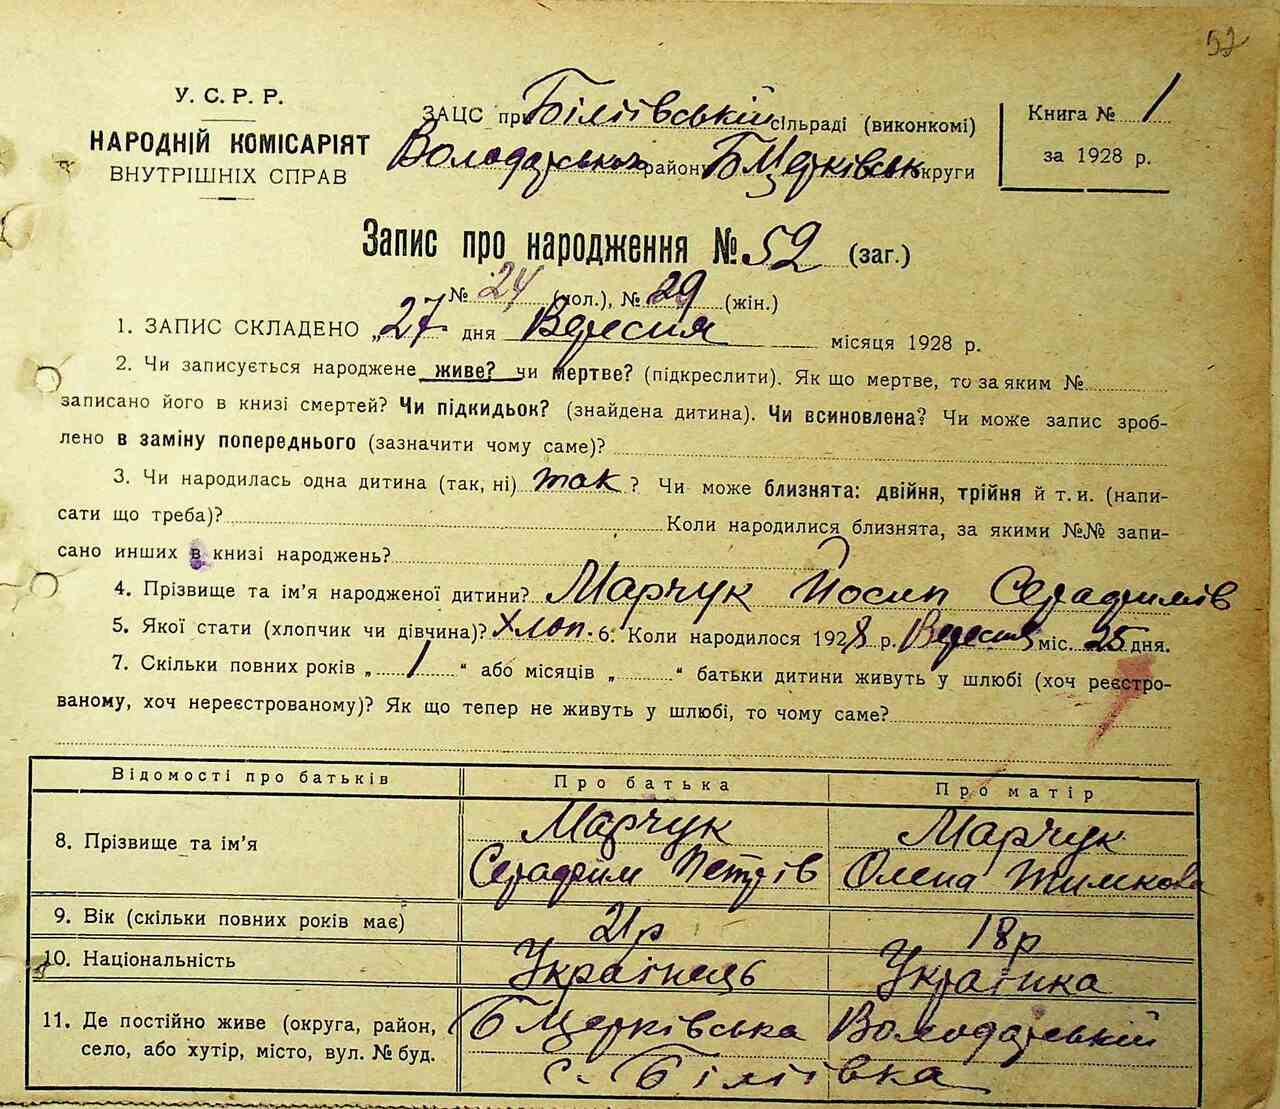 52
У. С. Р. Р.
НАРОДНІЙ КОМІСАРІЯТ
ВНУТРІШНІХ СПРАВ
ЗАЦС при Біліївській сільраді (виконкомі)
Володарського району БЦерківськ округи
Книга № 1
за 1928 р.
Запис про народження № 52 (заг.)
№ 24 (чол.), № 29 (жін.)
1. ЗАПИС СКЛАДЕНО „27 дня Вересня місяця 1928 р.
2. Чи записується народжене живе? чи мертве? (підкреслити). Як що мертве, то за яким №
записано його в книзі смертей? Чи підкидьок? (знайдена дитина). Чи всиновлена? Чи може запис зроб-
лено в заміну попереднього (зазначити чому саме)?
3. Чи народилась одна дитина (так, ні) так ? Чи може близнята: двійня, трійня й т. и. (напи-
сати що треба)? Коли народилися близнята, за якими №№ запи-
сано инших в книзі народжень?
4. Прізвище та ім'я народженої дитини? Марчук Йосип Серафимів
5. Якої стати (хлопчик чи дівчина)? Хлоп. 6. Коли народилося 1928 р. Вересня міс. 25 дня.
7. Скільки повних років „ 1 “ або місяців „ “ батьки дитини живуть у шлюбі (хоч реєстро-
ваному, хоч нереєстрованому)? Як що тепер не живуть у шлюбі, то чому саме?
Відомості про батьків Про батька Про матір
8. Прізвище та ім'я Марчук Серафим Петрів Марчук Олена Тимкова
9. Вік (скільки повних років має) 21р 18р
10. Національність Українець Українка
11. Де постійно живе (округа, район, БЦерківська Володарський
село, або хутір, місто, вул. № буд. с. Біліївка